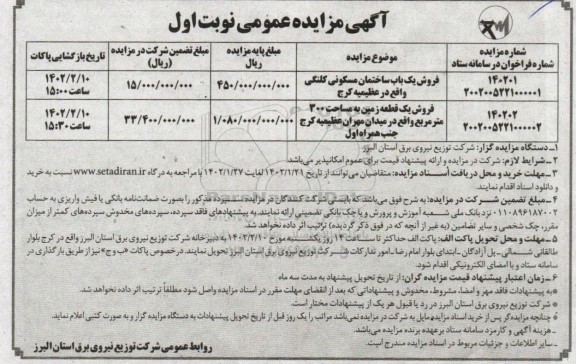 آگهی مزایده عمومی نوبت اول
شماره مزایده
شماره فراخوان در سامانه ستاد
موضوع مزایده
مبلغ پایه مزایده
ریال
مبلغ تضمین شرکت در مزایده
(ریال)
تاریخ بازگشایی پاکات
۱۴۰۲۰۱
۲۰۰۲۰۰۵۲۲۱۰۰۰۰۰۱
فروش یک باب ساختمان مسکونی کلنگی
واقع در عظیمیه کرج
۴۵۰/۰۰۰/۰۰۰/۰۰۰
۱۵/۰۰۰/۰۰۰/۰۰۰
۱۴۰۲/۲/۱۰
ساعت ۱۵:۰۰
۱۴۰۲۰۲
۲۰۰۲۰۰۵۲۲۱۰۰۰۰۰۲
فروش یک قطعه زمین به مساحت ۳۰۰
متر مربع واقع در میدان مهران عظیمیه کرج
جنب همراه اول
۱/۰۸۰/۰۰۰/۰۰۰/۰۰۰
۳۳/۴۰۰/۰۰۰/۰۰۰
۱۴۰۲/۲/۱۰
ساعت ۱۵:۳۰
۱ـ دستگاه مزایده گزار: شرکت توزیع نیروی برق استان البرز
۲ـ شرایط لازم: شرکت در مزایده و ارائه پیشنهاد قیمت برای عموم امکانپذیر می‌باشد
۳ـ مهلت خرید و محل دریافت اسناد مزایده: متقاضیان می‌توانند از تاریخ ۱۴۰۲/۱/۲۱ لغایت ۱۴۰۲/۱/۲۷ با مراجعه به درگاه www.setadiran.ir نسبت به خرید
و دانلود اسناد اقدام نمایند.
۴ـ مبلغ تضمین شرکت در مزایده: به شرح فوق می‌باشد که بایستی شرکت کنندگان در مزایده سپرده مذکور را بصورت ضمانت‌نامه بانکی یا فیش واریزی به حساب
۰۱۱۰۸۹۶۱۸۷۰۰۲ نزد بانک ملی شعبه آموزش و پرورش و یا چک بانکی تضمینی ارائه نمایند. به پیشنهادهای فاقد سپرده، سپرده‌های مخدوش سپرده‌های کمتر از میزان
مقرر، چک شخصی و سایر تضامین (به غیر از آنچه که در فوق ذکر گردید) ترتیب اثر داده نخواهد شد.
۵ـ مهلت و محل تحویل پاکت الف: پاکت الف حداکثر تا ساعت ۱۴ روز یکشنبه مورخ ۱۴۰۲/۲/۱۰ به دبیرخانه شرکت توزیع نیروی برق استان البرز واقع در کرج بلوار
طالقانی شمالی ـ پل آزادگان ـ ابتدای بلوار امام رضا ـ امور تدارکات شرکت توزیع نیروی برق استان البرز تحویل نمایند. درخصوص پاکات «ب و ج» نیز از طریق بارگذاری در
سامانه ستاد و با امضای الکترونیکی اقدام شود.
۶ـ زمان اعتبار پیشنهاد قیمت مزایده گران: از تاریخ تحویل پیشنهاد به مدت سه ماه
* به پیشنهادات فاقد مهر و امضا، مشروط، مخدوش و پیشنهاداتی که بعد از انقضای مهلت مقرر در اسناد مزایده واصل شود مطلقاً ترتیب اثر داده نخواهد شد.
* شرکت توزیع نیروی برق استان البرز در رد یا قبول هر یک از پیشنهادات مختار است.
* چنانچه مزایده‌گر پس از خرید اسناد مزایده مایل به شرکت در مزایده نمی‌باشد مراتب را یک روز قبل از تاریخ تحویل پیشنهادات به دستگاه مزایده گزار و به صورت کتبی اعلام نماید.
ـ هزینه آگهی و کارمزد سامانه ستاد برعهده برنده مزایده می‌باشد.
ـ سایر اطلاعات و جزئیات مربوط در اسناد مزایده مندرج است.
روابط عمومی شرکت توزیع نیروی برق استان البرز